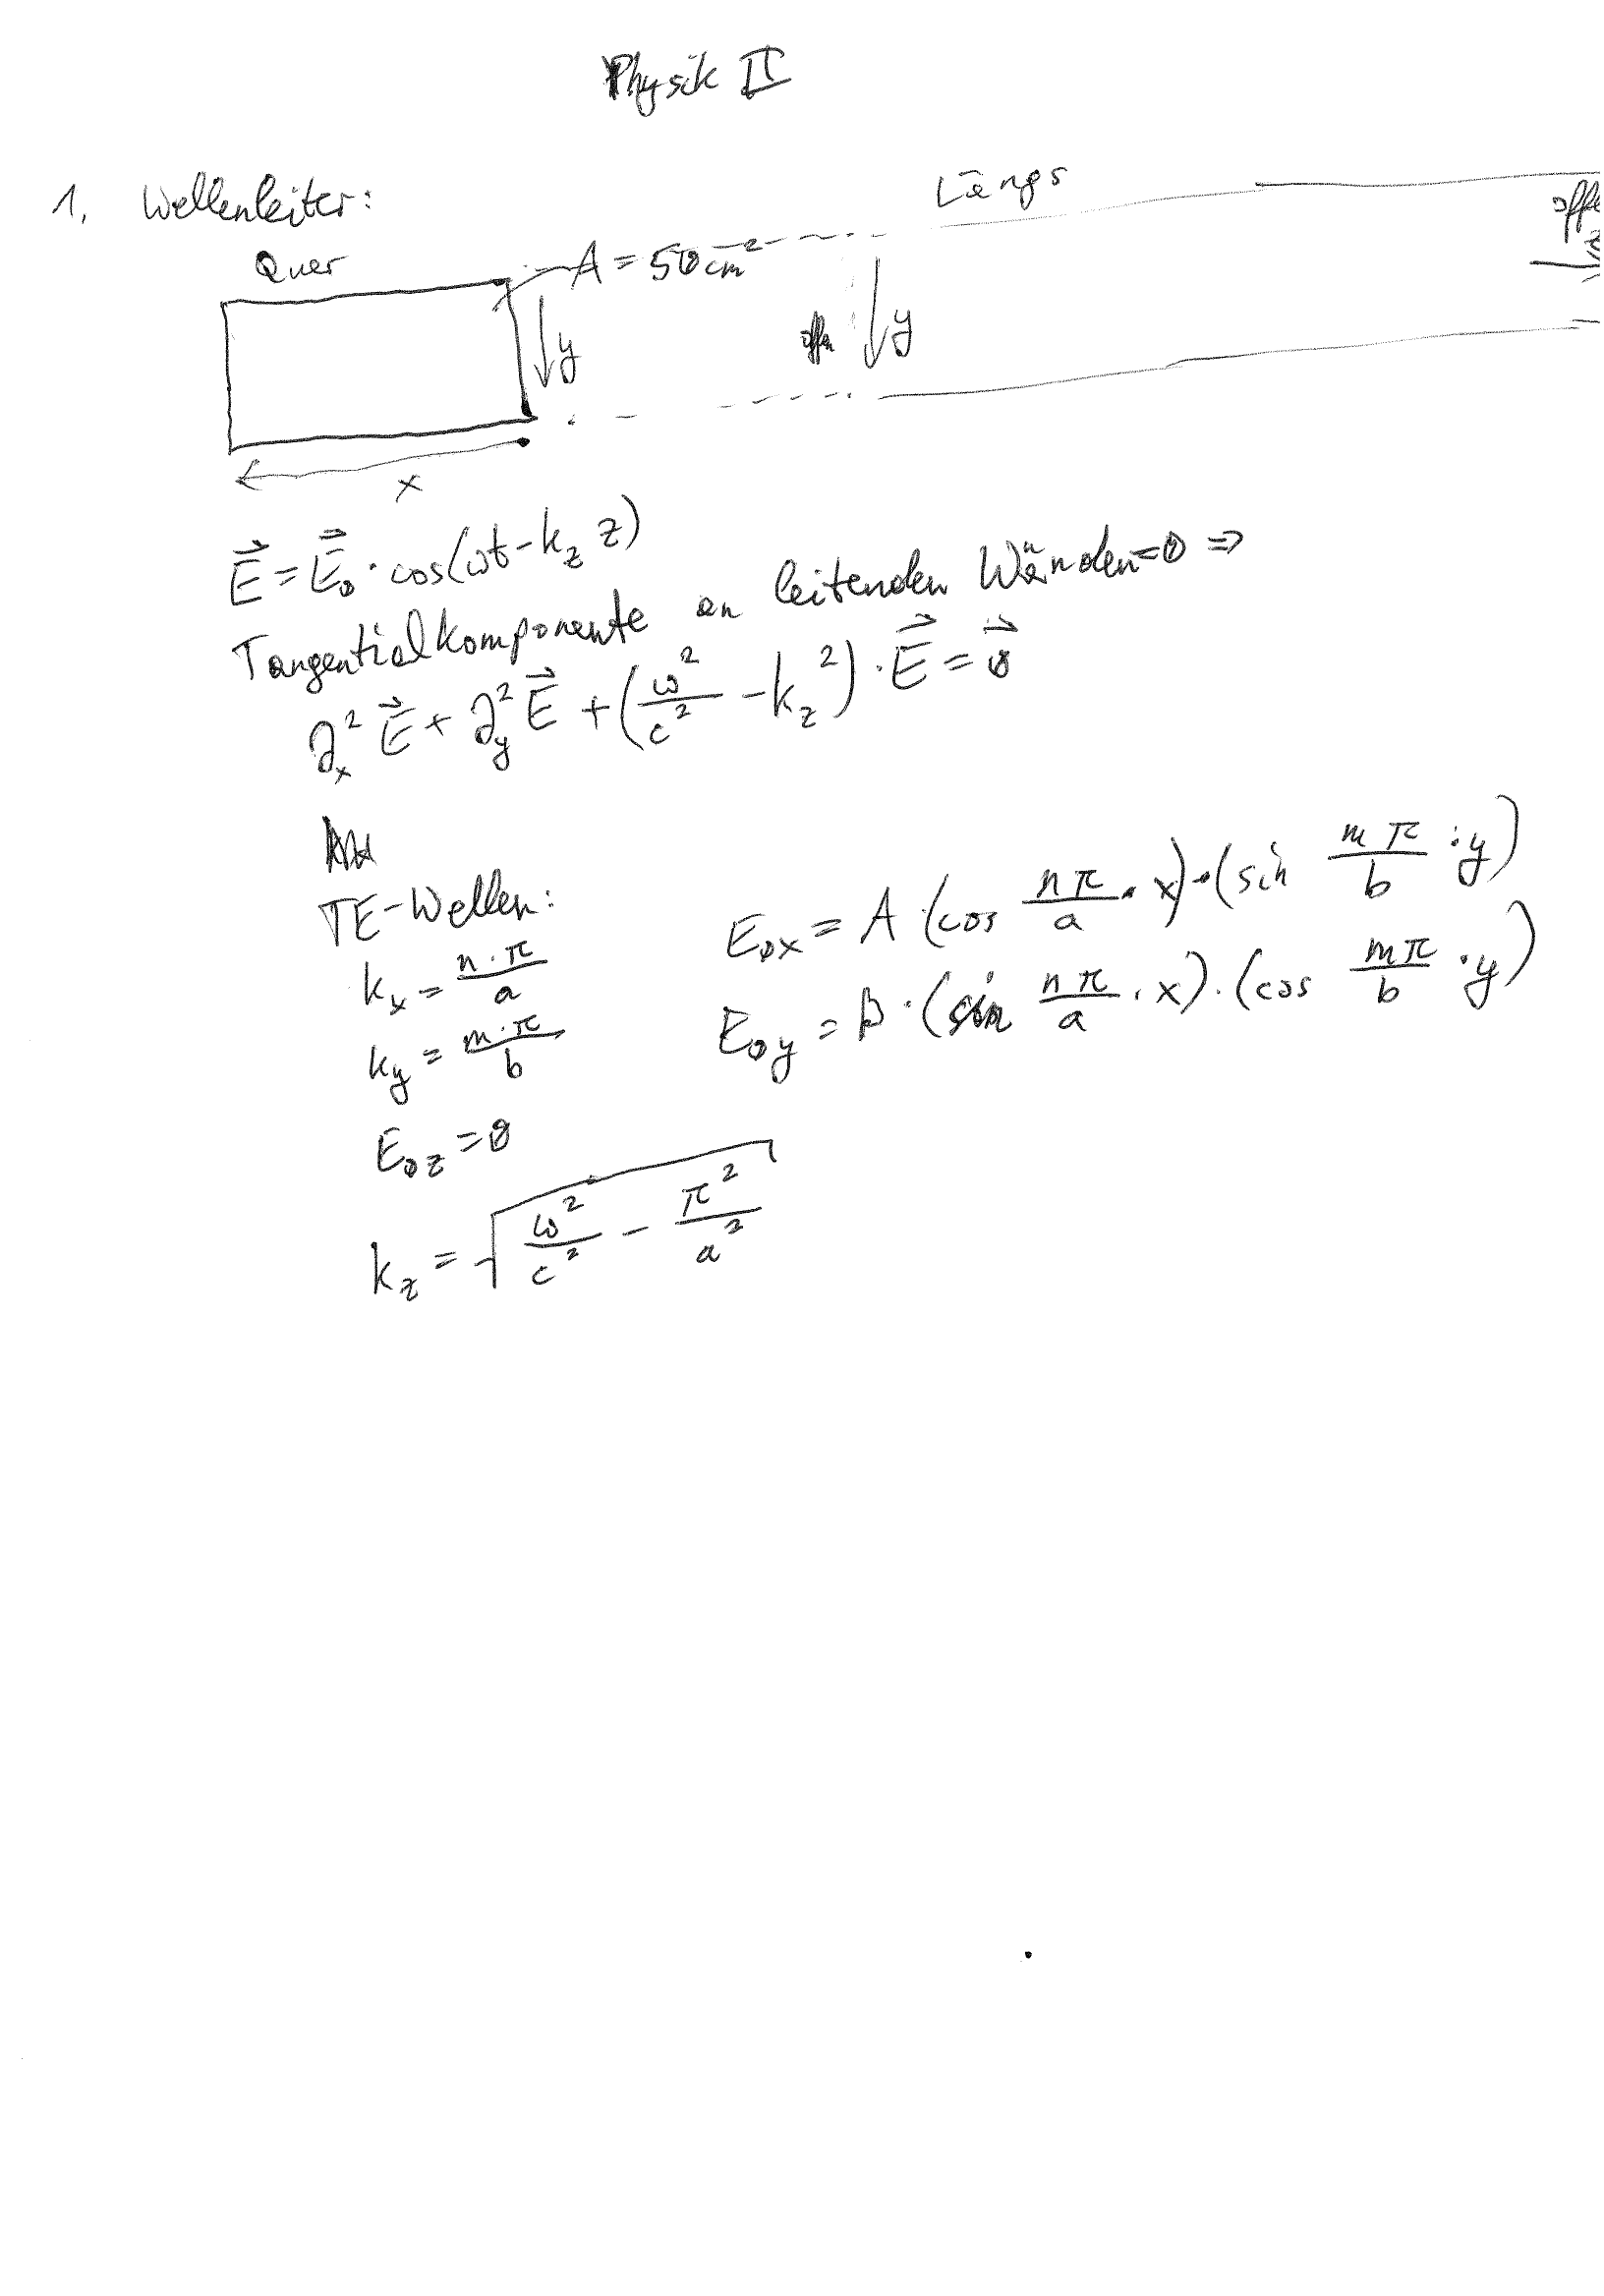 Physik II
1. Wellenleiter:
Längs
Quer
A = 50cm²
offen
y
y
x
E⃗ = E⃗₀ · cos(ωt - k_z z)
Tangentialkomponente an leitenden Wänden = 0 ⇒
∂ₓ² E⃗ + ∂_y² E⃗ + (ω²/c² - k_z²) · E⃗ = 0⃗
TE-Wellen:
E₀ₓ = A · (cos nπ/a · x) · (sin mπ/b · y)
kₓ = n·π/a
E₀y = B · (sin nπ/a · x) · (cos mπ/b · y)
k_y = m·π/b
E₀z = 0
k_z = √(ω²/c² - π²/a²)